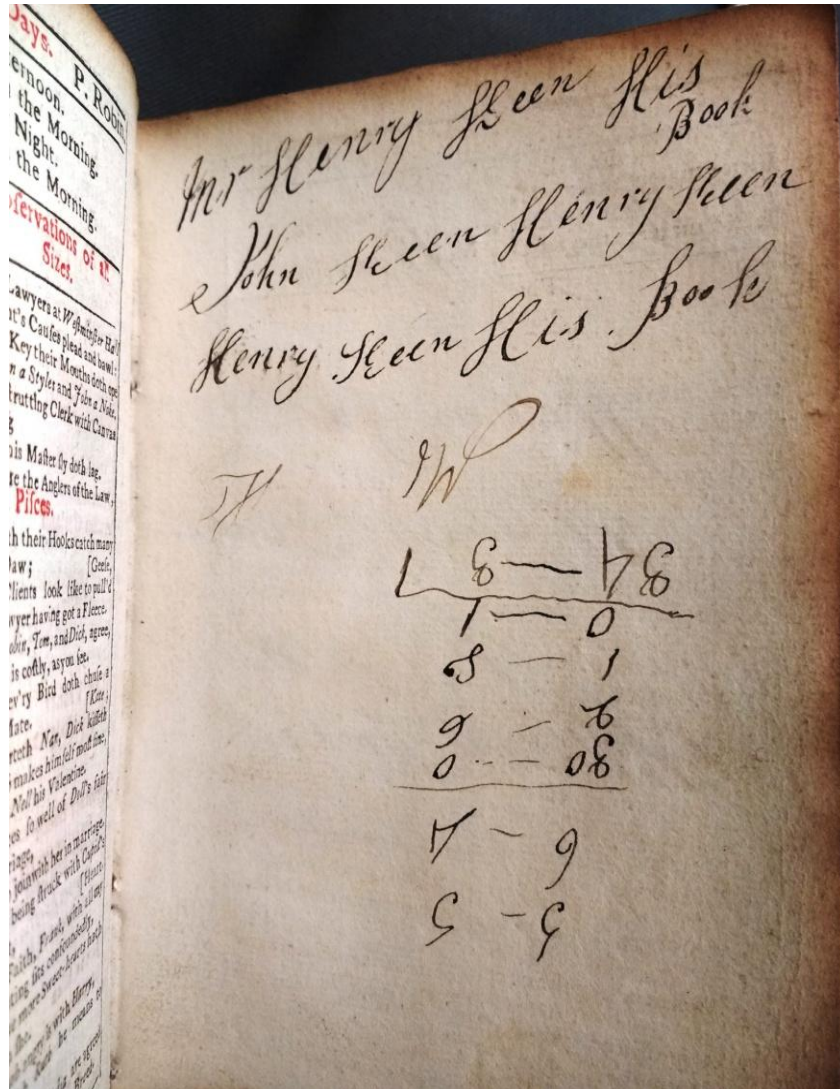 Days. P. Robin
ernoon.
the Morning.
Night.
the Morning.
bservations of all
Sizes.
Lawyers at Westminster Hall
nt's Causes plead and bawl:
Key their Mouths doth ope
n a Styles and John a Noke,
trutting Clerk with Canvas
g
his Master sly doth lag.
re the Anglers of the Law,
Pisces.
th their Hooks catch many
Daw; [Geese,
Clients look like to pull'd
wyer having got a Fleece.
obin, Tom, and Dick, agree,
is costly, as you see.
ev'ry Bird doth chuse a
Mate. [Kate;
eth Nan, Dick kisseth
makes himself most fine,
Nell his Valentine.
es so well of Doll's fair
riage,
join with her in marriage,
being struck with Cupid's
Mr Henry Keen His
Book
John Keen Henry Keen
Henry Keen His Book
TH W
5 - 5
6 - 4
30 - 0
2 - 6
1 - 8
0 - 1
34 - 3